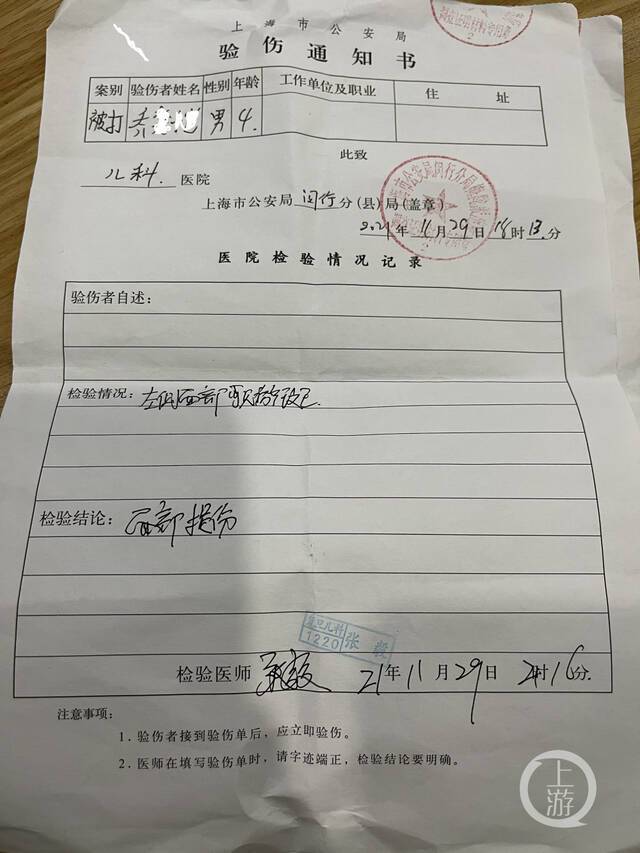 上海市公安局
验伤通知书
案别 验伤者姓名 性别 年龄 工作单位及职业 住 址
被打 男 4.
此致
儿科. 医院
上海市公安局 闵行 分(县)局(盖章)
2021年 11月 29日 18时 13.分
医院检验情况记录
验伤者自述：
检验情况： 左侧面部
检验结论： 面部损伤
复旦儿科
1220 张毅
检验医师 张毅 21年 11月 29日 21时 16分.
注意事项：
1. 验伤者接到验伤单后，应立即验伤。
2. 医师在填写验伤单时，请字迹端正，检验结论要明确。
上游